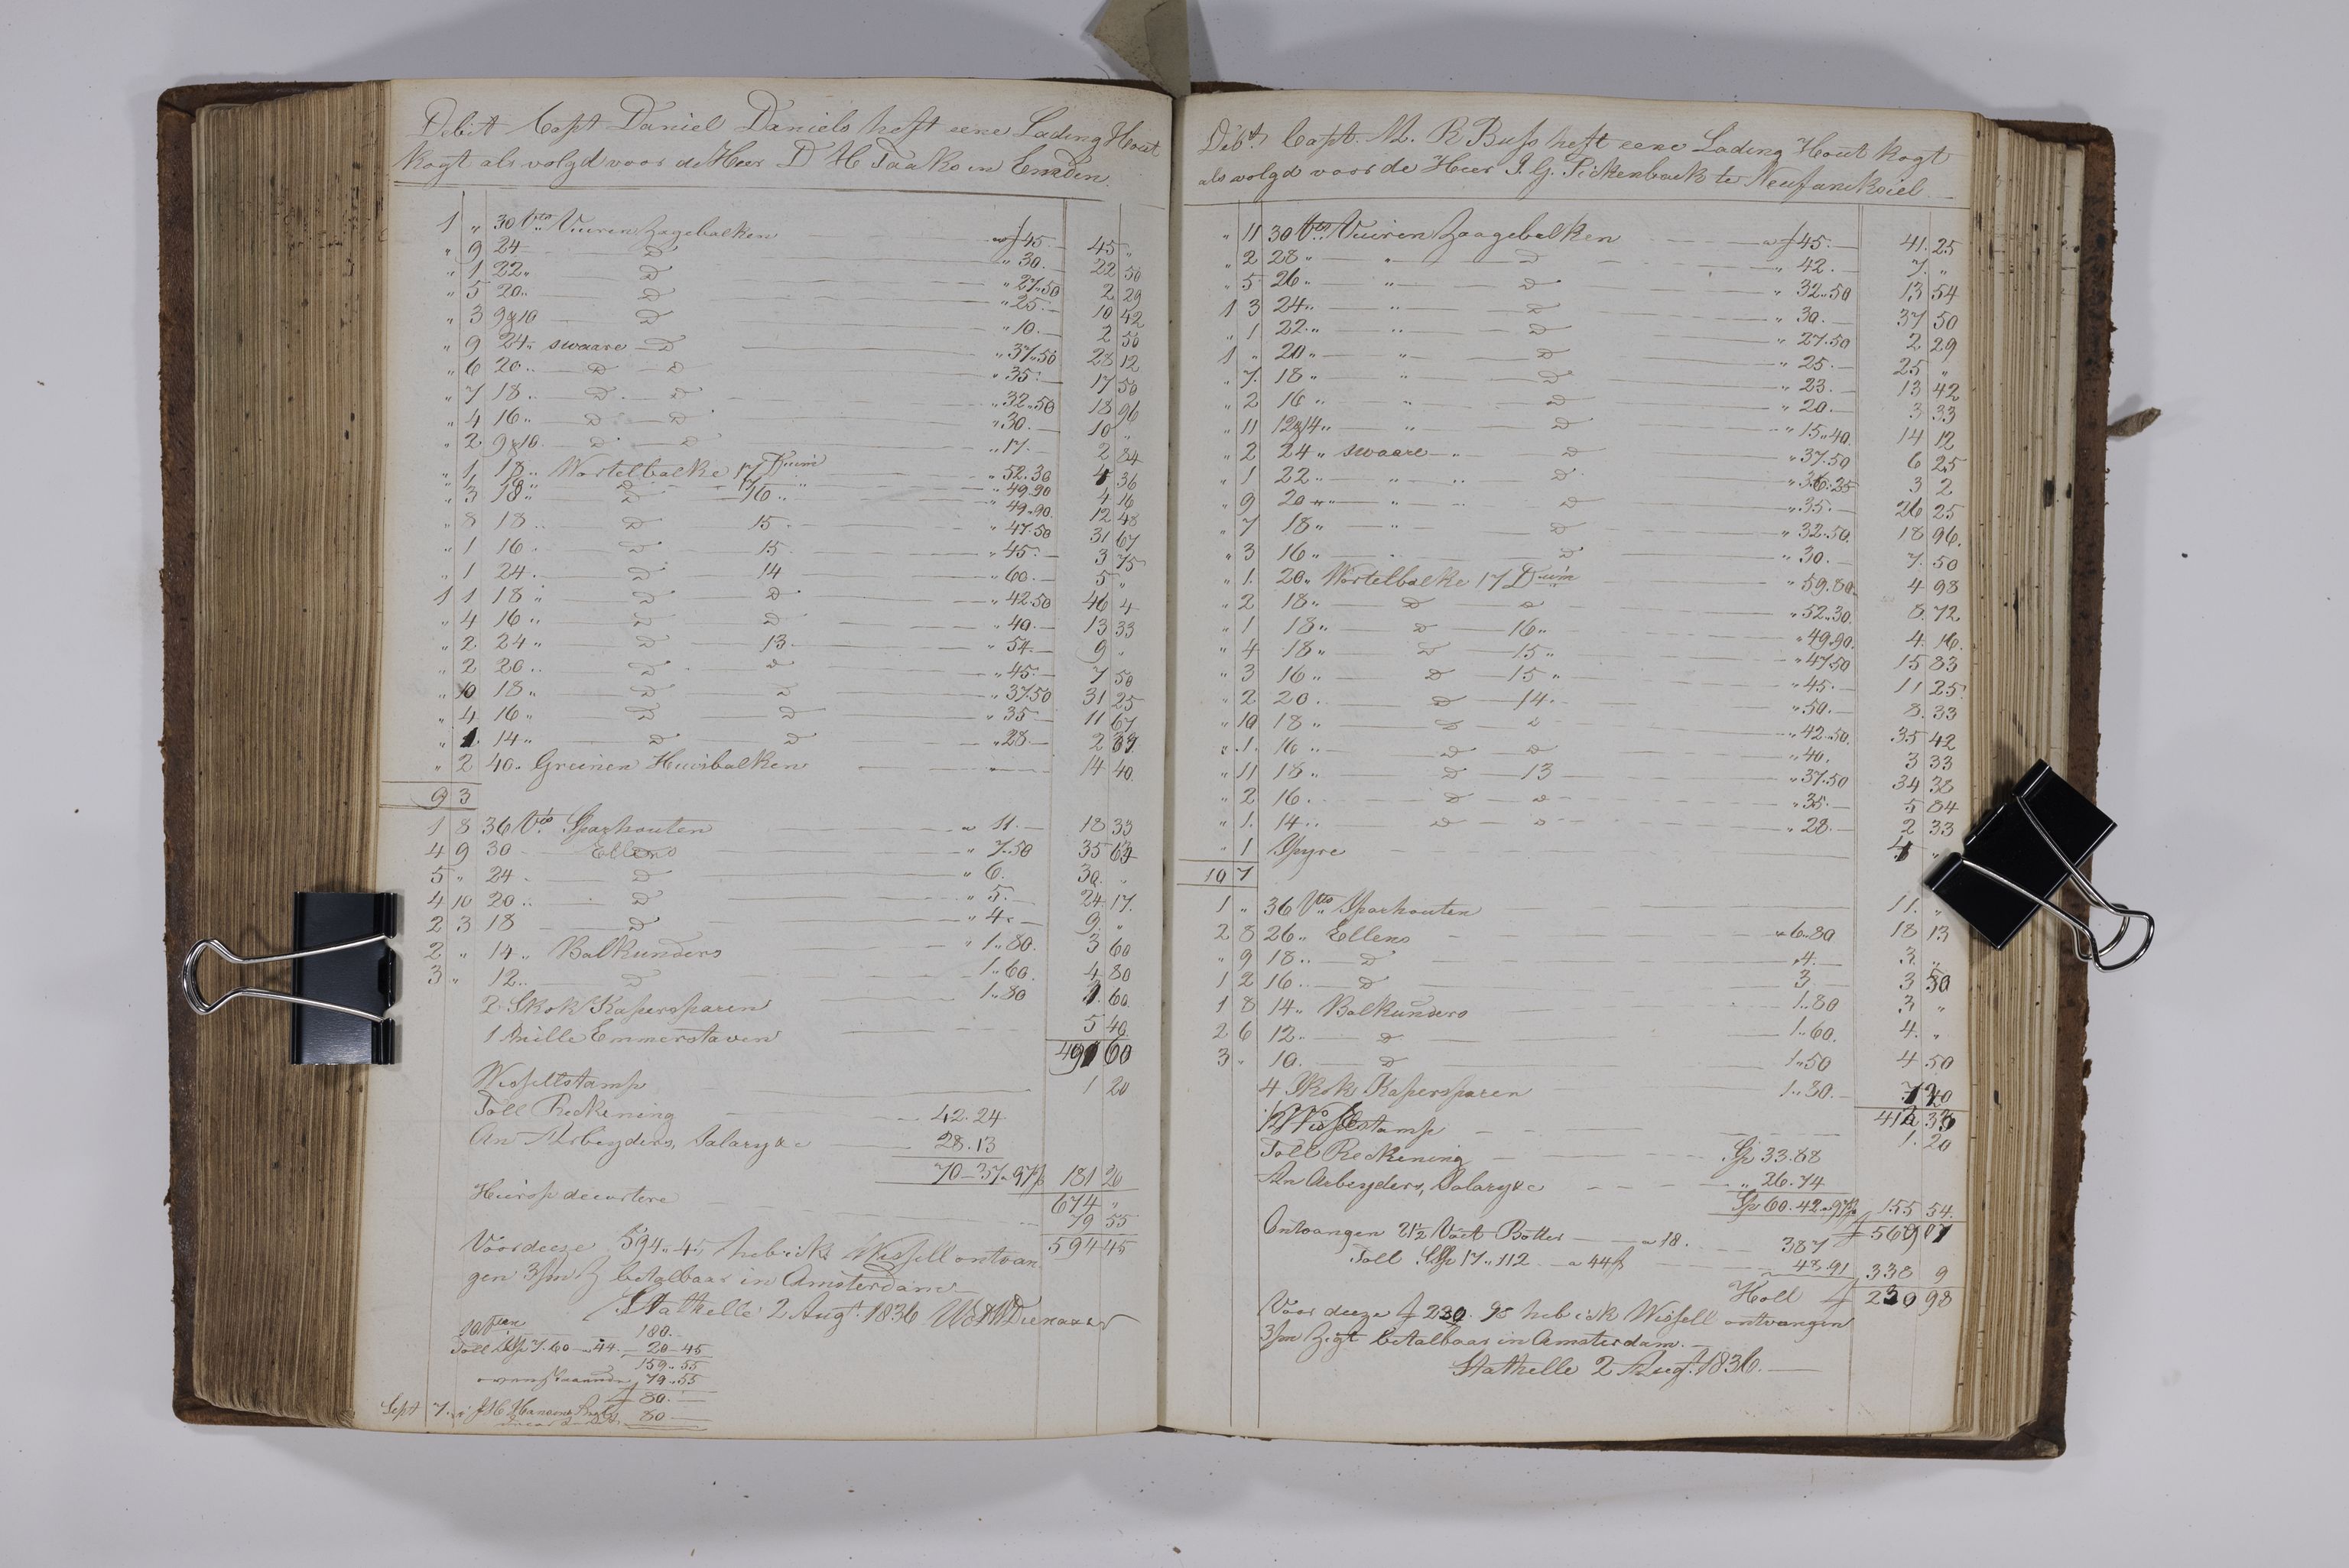 Debit Capt Daniel Daniels heft eene Lading Hout
kogt als volgd voor de Heer D H Taaks in Emden.
1 " 30 Vto Vuuren Zagebalken a f 45.— 45 "
" 9 24 D " 30.— 22 50
" 1 22 " D " 27.50 2 29
" 5 20 " D " 25.— 10 42
" 3 9 & 10 D " 10.— 2 50
" 9 24 " swaare D " 37.50 28 12
" 6 20 " D D " 35.— 17 50
" 7 18 " D D " 32.50 18 96
" 4 16 " D D " 30.— 10 "
" 2 9 & 10 D D " 17.— 2 84
" 1 18 " Wortelbalke 17 Duim " 52.30 4 36
" 3 18 " D 16 " " 49.90 4 16
" 49.90 12 48
" 8 18 " D 15 " 47.50 31 67
" 1 16 " D 15 " 45.— 3 75
" 1 24 " D 14 " 60.— 5 "
1 1 18 " D D " 42.50 46 4
" 4 16 " D D " 40.— 13 33
" 2 24 " D 13 " 54.— 9 "
" 2 20 " D D " 45.— 7 50
" 10 18 " D D " 37.50 31 25
" 4 16 " D D " 35.— 11 67
" 1 14 " D D " 28.—
" 2 40 " Greinen Huisbalken 14 40
9 3
1 8 36 Vto Sparhouten a 11.— 18 33
4 9 30 Ellens " 7.50 35 63
5 " 24 D " 6. 30 "
4 10 20 " D " 5.— 24 17
2 3 18 D " 4.— 9 "
2 " 14 " Balkunders " 1.80 3 60
3 " 12 " D 1.60 4 80
2 Skok Kapersparen 1.80 3 60
1 Mille Emmerstaven 5 40
491 60
Wissellstamp 1 20
Toll Reckening 42.24
An Arbeyders, Salary &c 28.13
70—37 a 97ß 181 26
674 "
79 55
Voor deeze 594.45 heb ick Wissell ontvan- 594 45
gen 3/m betalbaar in Amsterdam
Stathelle 2 Augt 1836
180.—
Toll Sp 7.60 a 44.— 20—45
159..55
79..55
f 80.—
Sept 7 80.—
Debt Capt. M. R Buss heft eene Lading Hout kogt
als volgd voor de Heer J. G. Pickenback te Neufancksiel
" 11 30 Vto Vuuren Zaagebalken a f 45.— 41 25
" 2 28 " " D " 42.— 7 "
" 5 26 " " D " 32.50 13 54
1 3 24 " " D " 30.— 37 50
" 1 22 " " D " 27.50 2 29
1 " 20 " " D " 25.— 25 "
" 7 18 " " D " 23.— 13 42
" 2 16 " " D " 20.— 3 33
" 11 12 & 14 " " D " 15.40 14 12
" 2 24 " swaare " D " 37.50 6 25
" 1 22 " " " D " 36.25 3 2
" 9 20 " " " D " 35.— 26 25
" 7 18 " " D " 32.50 18 96
" 3 16 " " D " 30.— 7 50
" 1 20 " Wortelbalke 17 Duim " 59.80 4 98
" 2 18 " D D " 52.30 8 72
" 1 18 " D 16 " " 49.90 4 16
" 4 18 " D 15 " " 47.50 15 83
" 3 16 " D 15 " " 45.— 11 25
" 2 20 " D 14 " 50.— 8 33
" 10 18 " D D " 42.50 35 42
" 1 16 " D D " 40. 3 33
" 11 18 " D 13 " 37.50 34 38
" 2 16 " D D " 35.— 5 84
" 1 14 " D D " 28.— 2 33
" 1 Spyre 4 "
10 7
1 " 36 Vto Sparhouten 11 "
2 8 26 " Ellens " 6.80 18 13
" 9 18 " D " 4.— 3 "
1 2 16 " D 3 3 50
1 8 14 " Balkunders 1.80 3 "
2 6 12 " D 1.60 4 "
3 " 10 D 1.50 4 50
4 Skok Kapersparen 1.80.— 7 20
412 33
Wissellstamp 1 20
Toll Reckening Sp 33.88
An Arbeyders, Salary &c " 26.74
Sp 60.42 a 97ß 155 54
f 569 07
Ontvangen 21½ Vaet Botter a 18. 387
Toll Sp 17..112 a 44ß 48.91 338 9
Holl f 230 98
Voor deeze f 230.98 heb ick Wissell ontvangen
3/m Zigt betalbaar in Amsterdam.
Stathelle 2 Augt 1836.